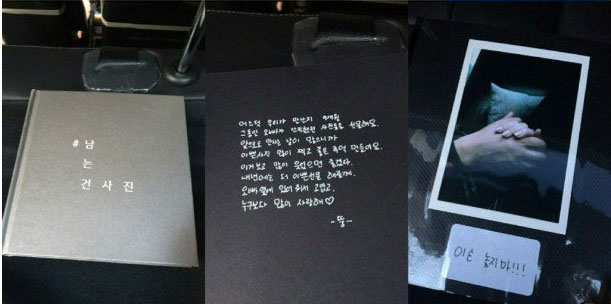 #남
는
건사진
어느덧 우리가 만난지
그동안 오빠가 사진들을 선물해요.
앞으로도 만나는 날이 많으니까
이쁜사진 많이 찍고 좋은 추억 만들어요.
이거보고 많이 웃었으면 좋겠다.
내년에는 더 이쁜선물 해줄게.
오빠옆에 있어줘서 고맙고,
누구보다 많이 사랑해♡
-뚱-
이손 놓지마!!!